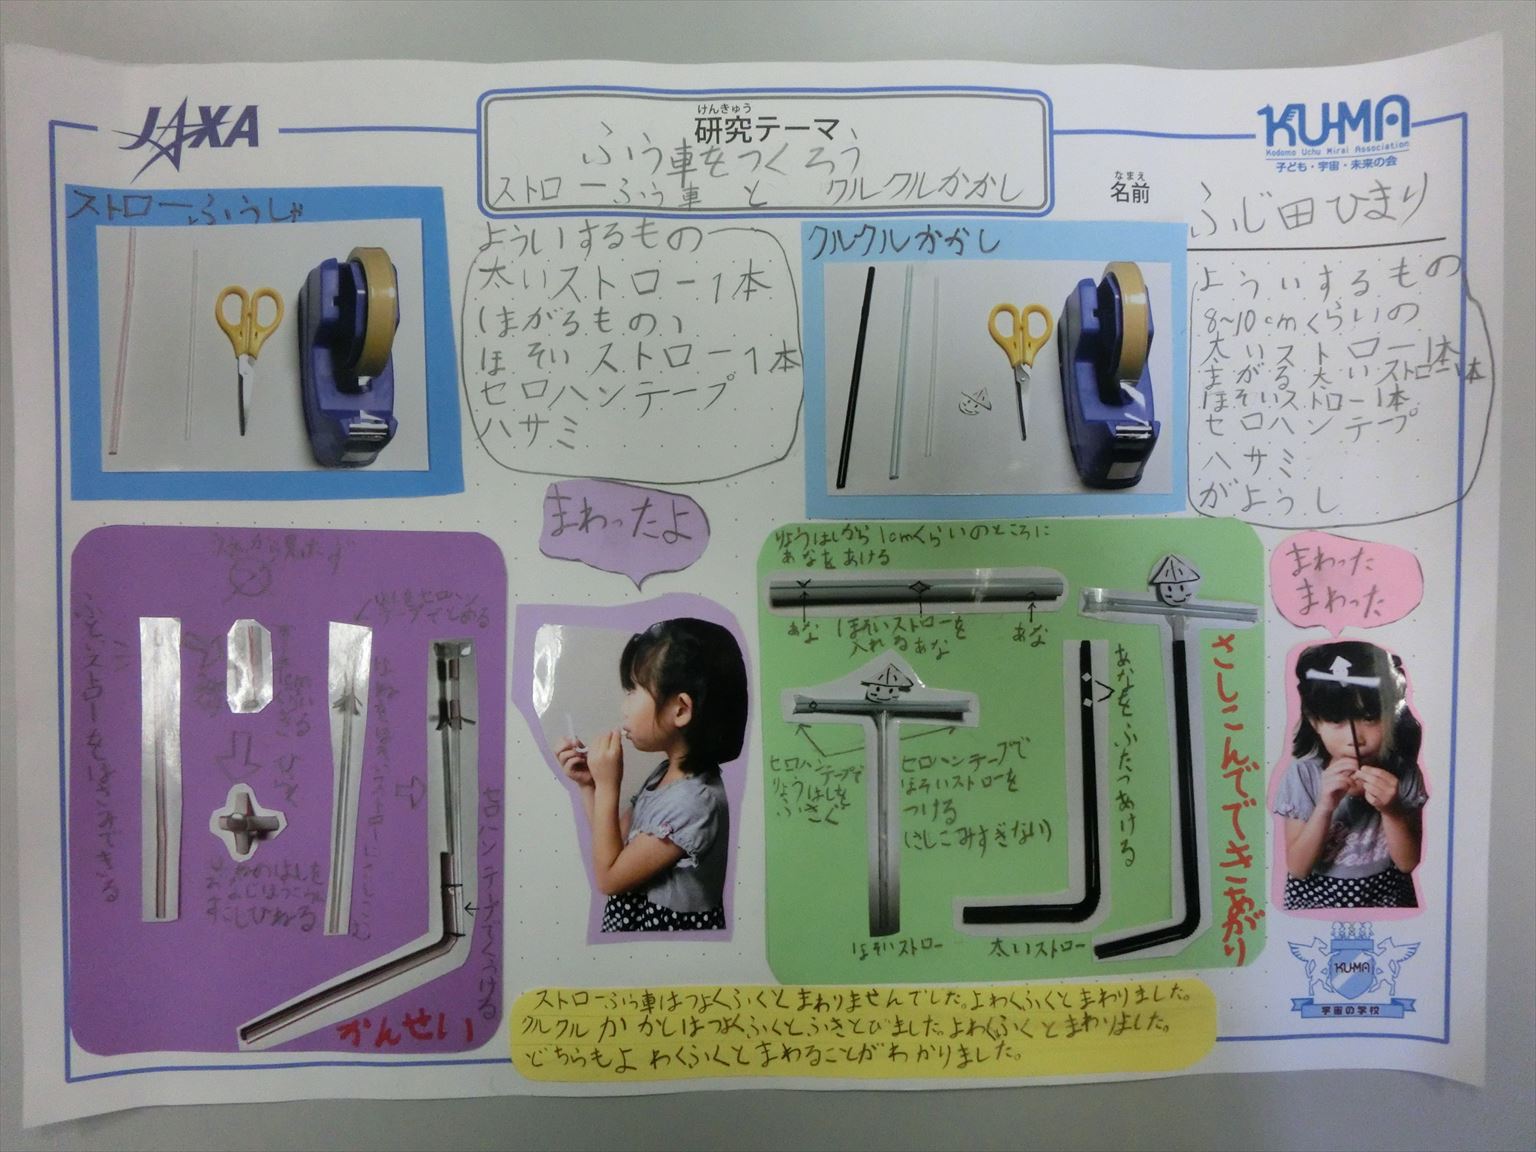 JAXA
けんきゅう
研究テーマ
ふう車をつくろう
ストローふう車 と クルクルかかし
KU-MA
Kodomo Uchu Mirai Association
子ども・宇宙・未来の会
なまえ
名前
ふじ田ひまり
ストローふうしゃ
よういするもの
太いストロー1本
(まがるもの)
ほそいストロー1本
セロハンテープ
ハサミ
クルクルかかし
よういするもの
8~10cmくらいの
太いストロー1本
まがる太いストロー1本
ほそいストロー1本
セロハンテープ
ハサミ
がようし
ふといストローをはさみできる
ひらく
セロハンテープでくっつける
かんせい
まわったよ
りょうはしから1cmくらいのところに
あなをあける
あな
ほそいストローを
入れるあな
あな
セロハンテープで
りょうはしを
ふさぐ
セロハンテープで
ほそいストローを
つける
(さしこみすぎない)
ほそいストロー
あなをふたつあける
太いストロー
さしこんでできあがり
まわった
まわった
KU-MA
宇宙の学校
ストローふう車はつよくふくとまわりませんでした。よわくふくとまわりました。
クルクルかかしはつよくふくとふきとびました。よわくふくとまわりました。
どちらもよわくふくとまわることがわかりました。